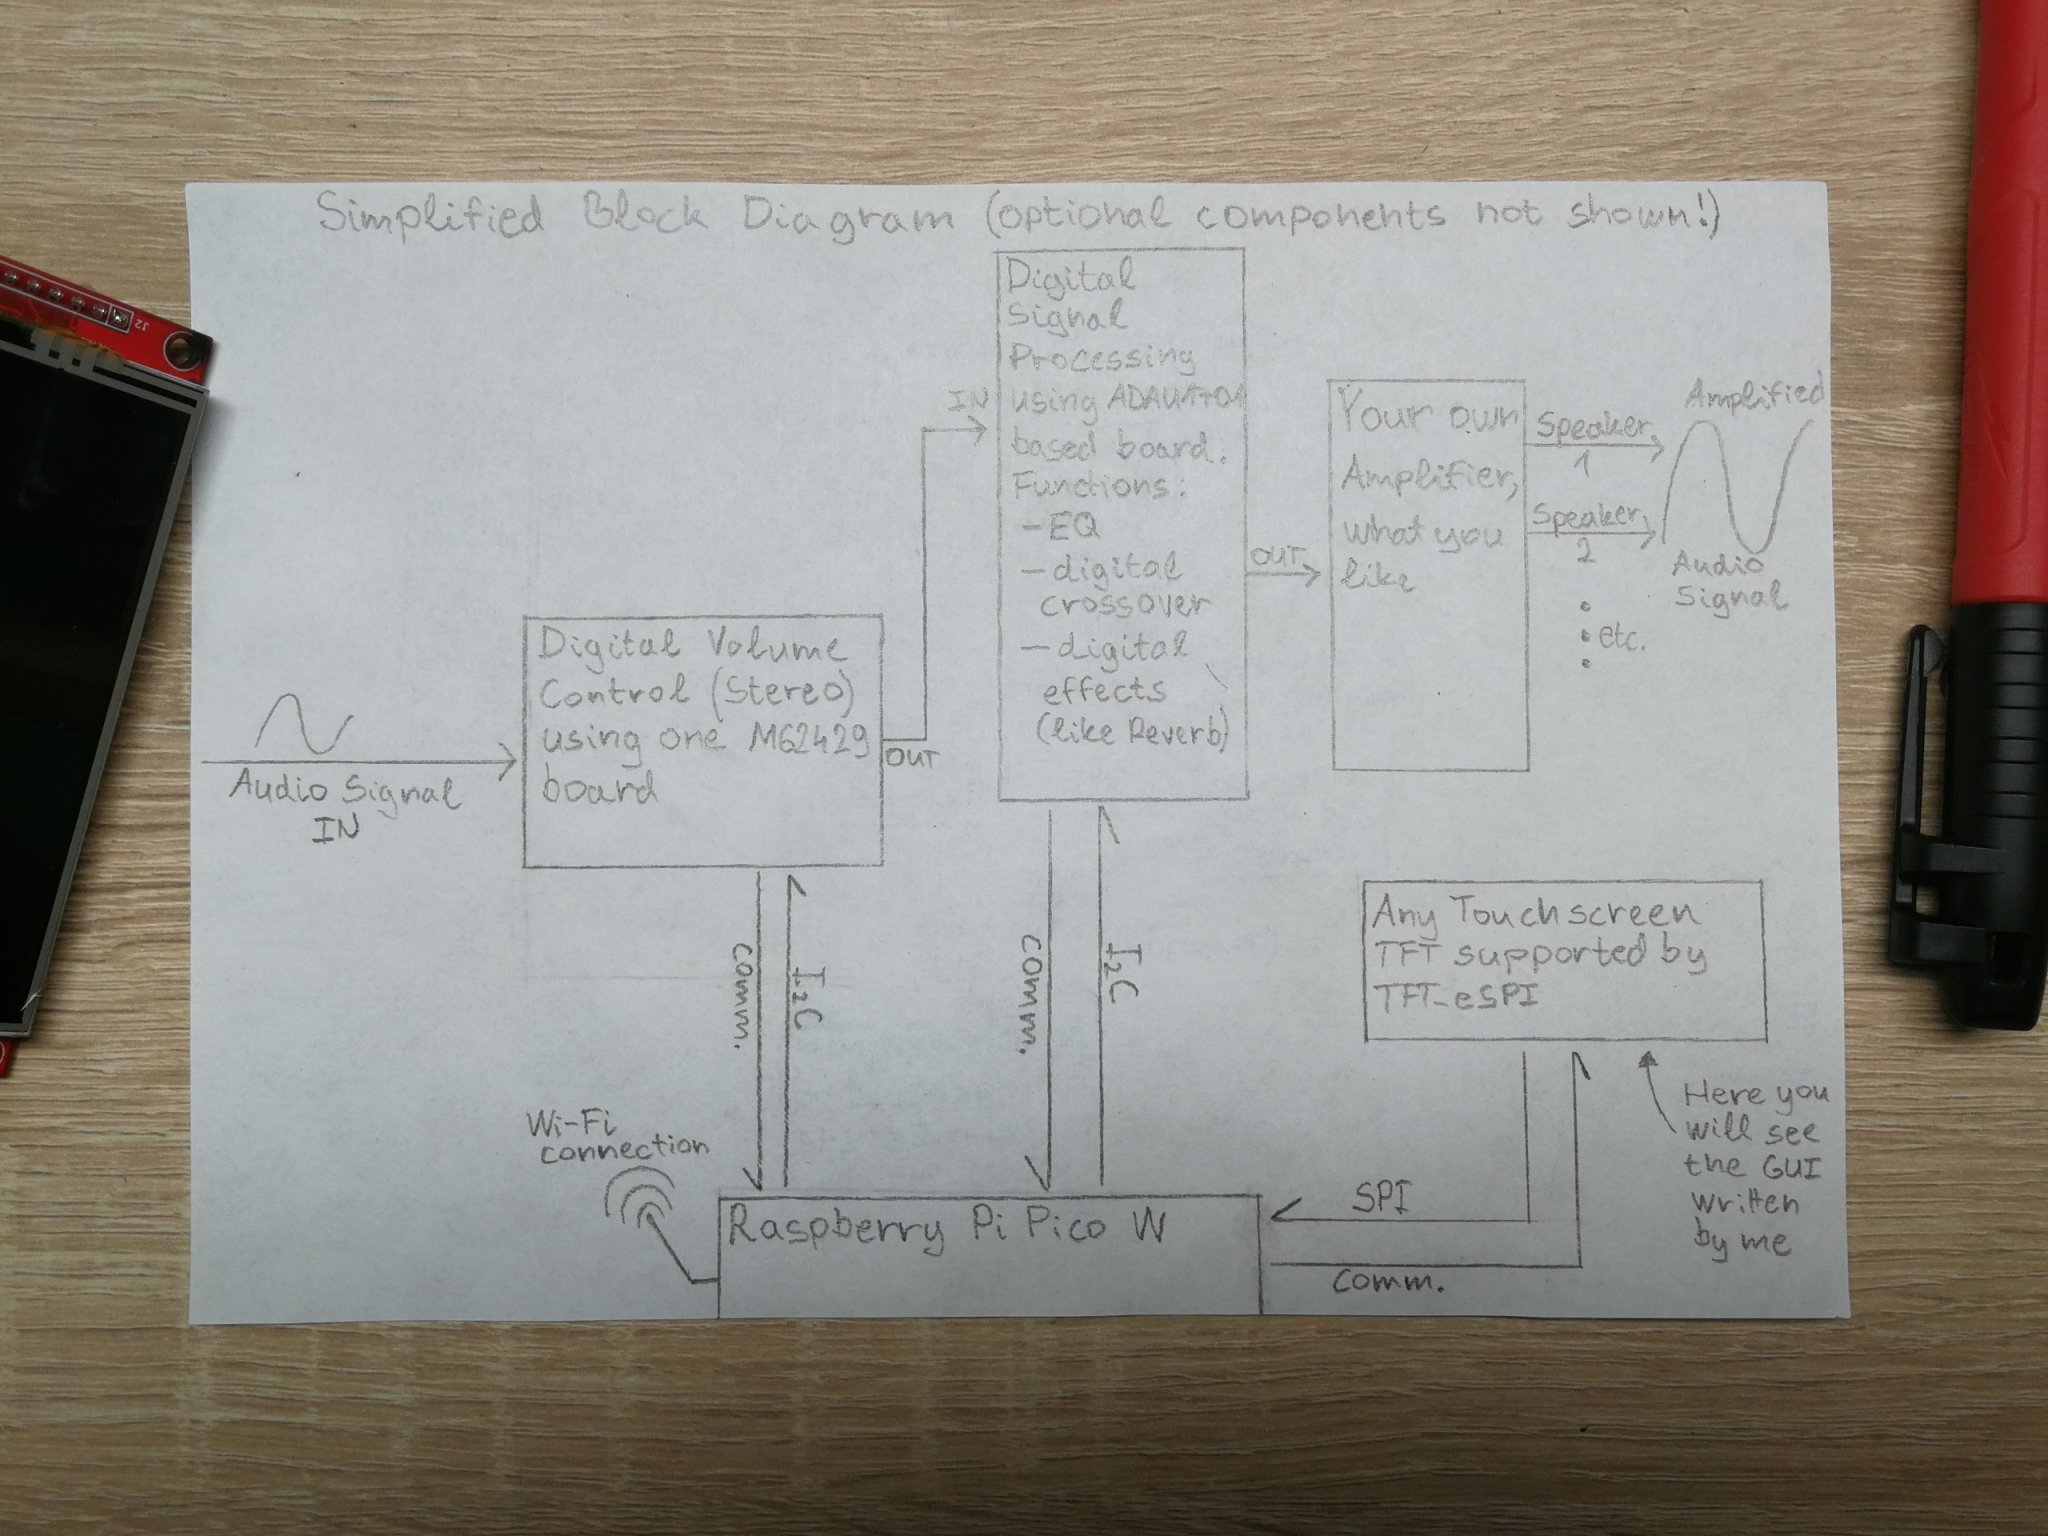 Simplified Block Diagram (optional components not shown!)
Digital
Signal
Processing
using ADAU1701
based board.
Functions:
- EQ
- digital
crossover
- digital
effects
(like Reverb)
IN
OUT
Your own
Amplifier,
what you
like
Speaker
1
Speaker
2
etc.
Amplified
Audio
Signal
Digital Volume
Control (Stereo)
using one M62429
board
OUT
Audio Signal
IN
comm.
I2C
comm.
I2C
Any Touchscreen
TFT supported by
TFT_eSPI
Here you
will see
the GUI
written
by me
Wi-Fi
connection
Raspberry Pi Pico W
SPI
comm.
J2